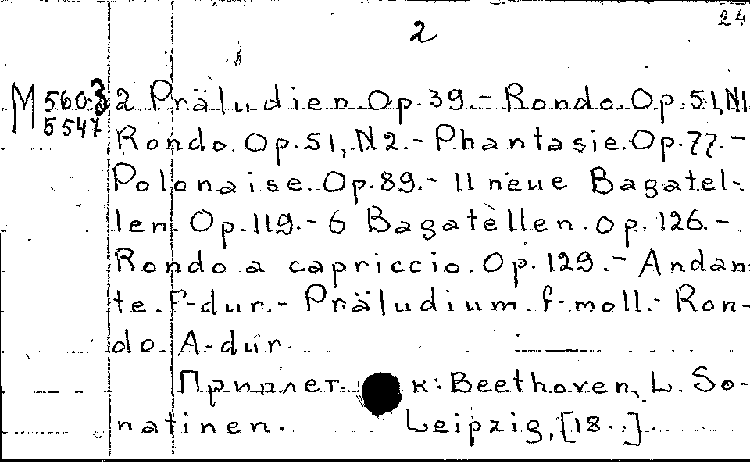 24
2
M 560-3 2 Präludien. Op. 39. - Rondo. Op. 51, N1
5547 Rondo. Op. 51, N2. - Phantasie. Op. 77. -
Polonaise. Op. 89. - 11 neue Bagatel-
len. Op. 119. - 6 Bagatellen. Op. 126. -
Rondo a capriccio. Op. 129. - Andan-
te. F-dur. - Präludium. f-moll. - Ron-
do. A-dur.
Приплет. к: Beethoven, L. So-
natinen. Leipzig, [18..]